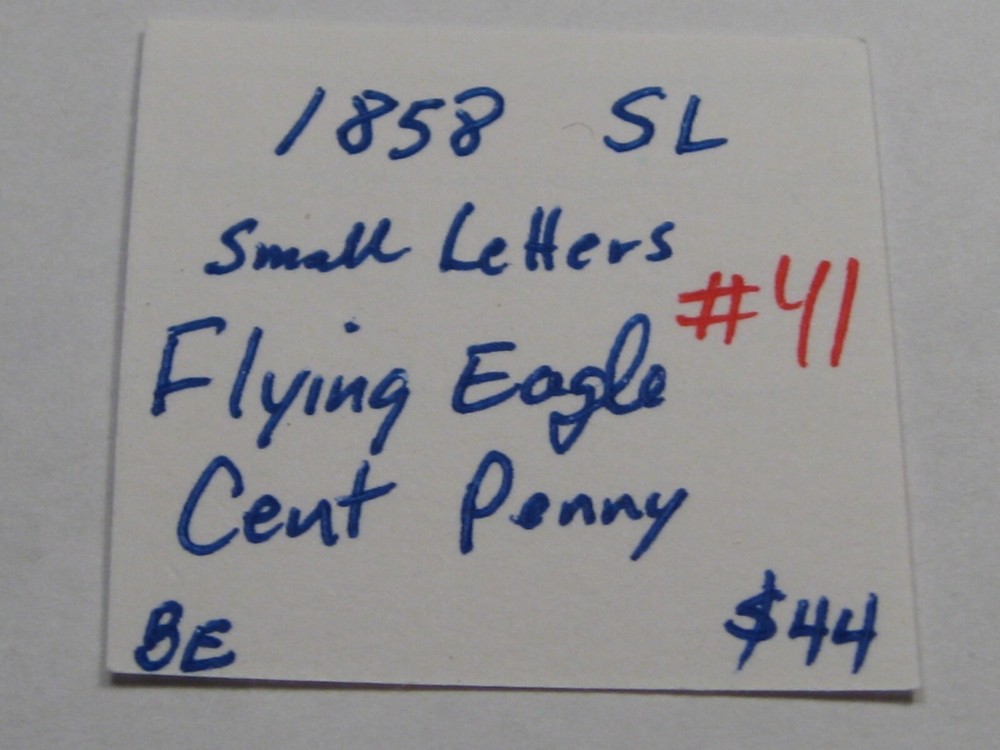 1858 SL
Small Letters
#41
Flying Eagle
Cent Penny
BE $44